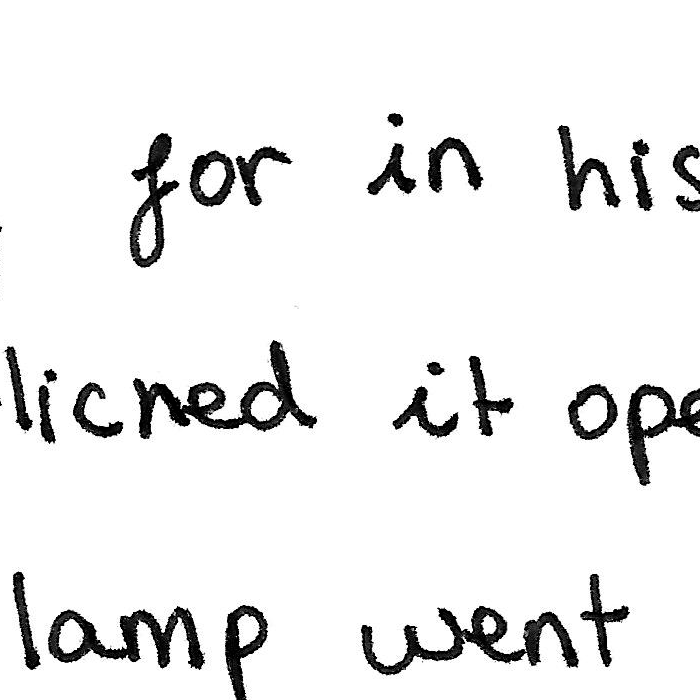 for in his
licned it ope
lamp went